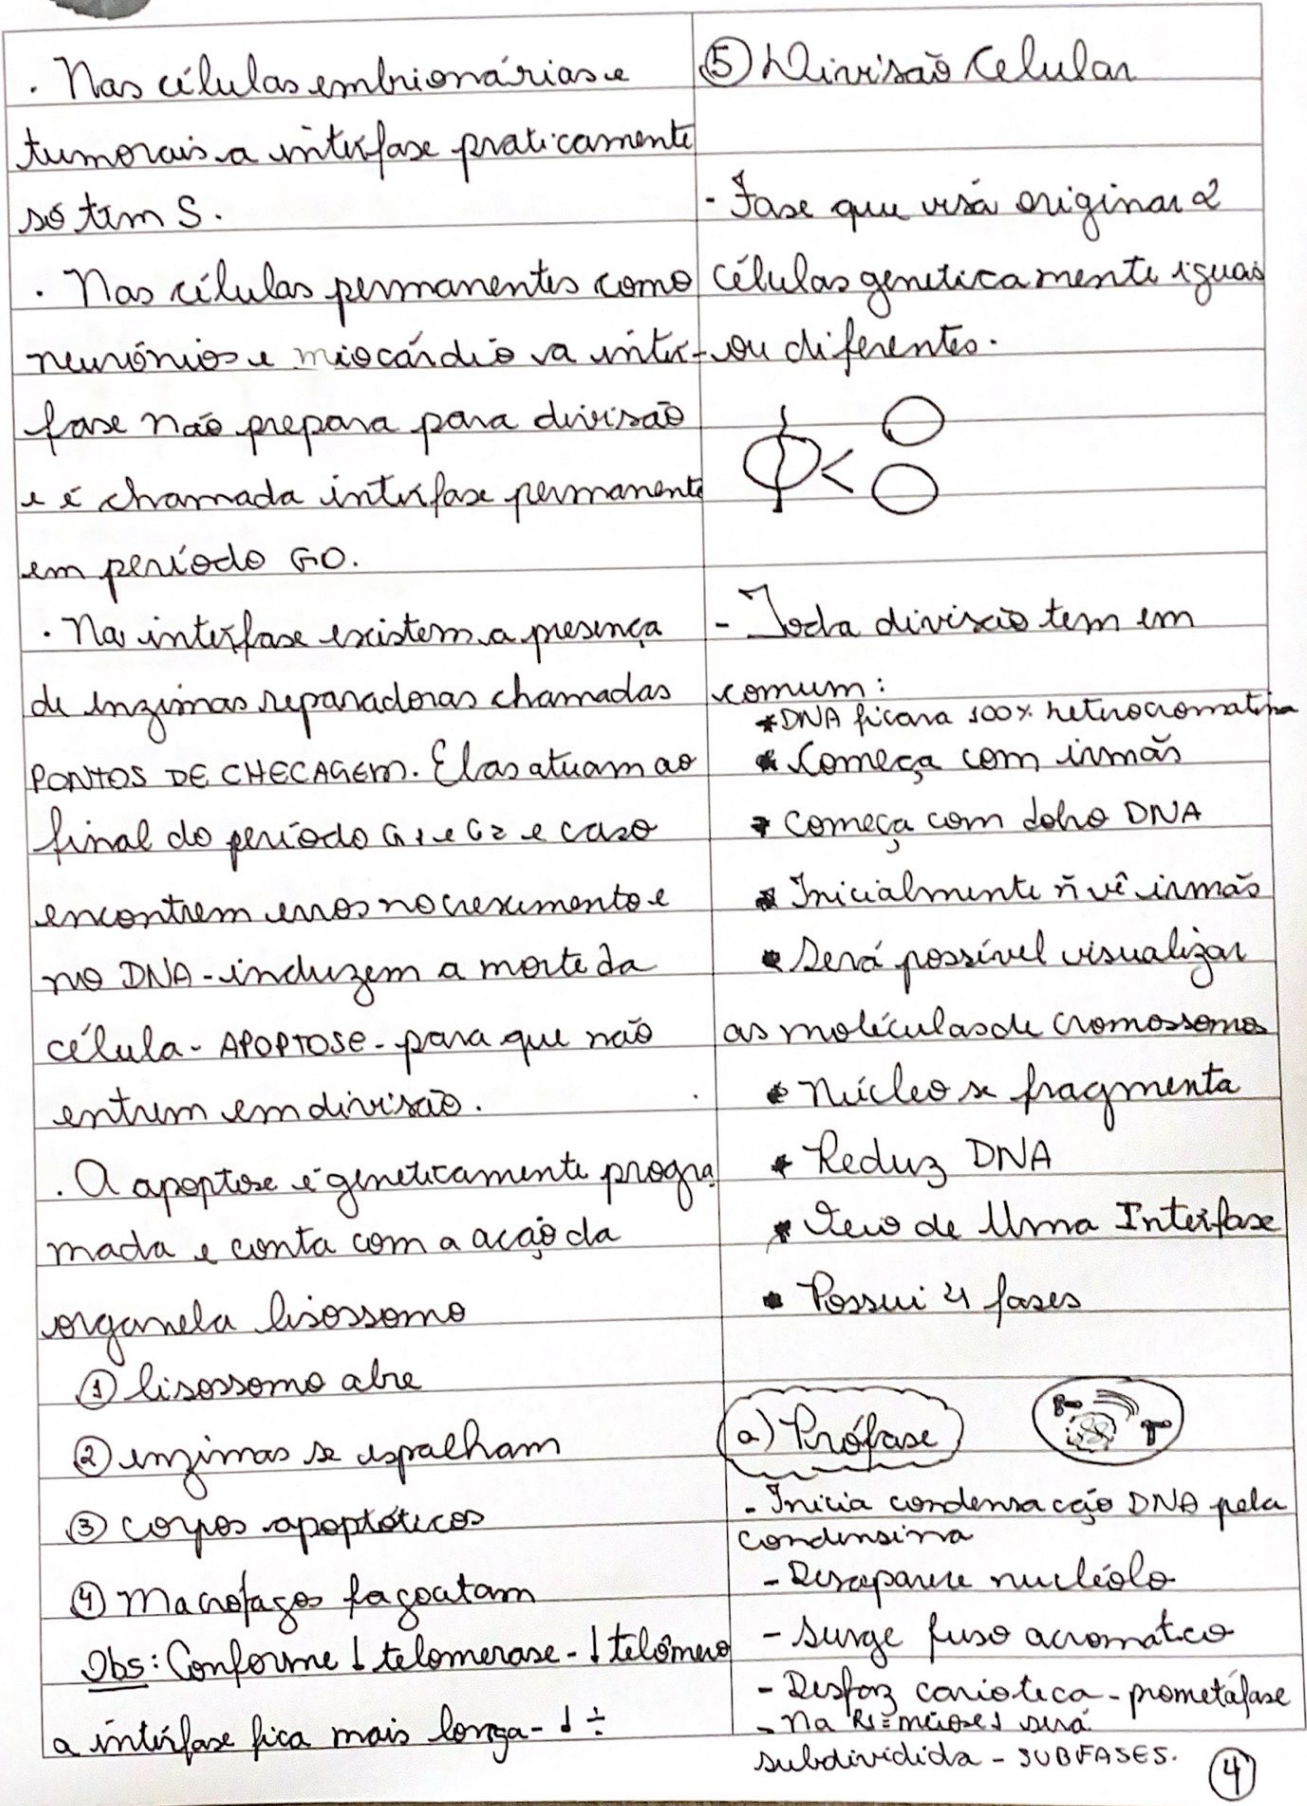 . Nas células embrionárias e
tumorais a interfase praticamente
só tem S.
. Nas células permanentes como
neurônios e miocárdio a inter-
fase não prepara para divisão
e é chamada interfase permanente
em período G0.
. Na interfase existem a presença
de enzimas reparadoras chamadas
PONTOS DE CHECAGEM. Elas atuam ao
final do período G1 e G2 e caso
encontrem erros no crescimento e
no DNA - induzem a morte da
célula - APOPTOSE - para que não
entrem em divisão.
. A apoptose é geneticamente progra
mada e conta com a ação da
organela lisossomo
① lisossomo abre
② enzimas se espalham
③ corpos apoptóticos
④ Macrófagos fagocitam
Obs: Conforme ↓ telomerase - ↓ telômero
a intérfase fica mais longa - ↓ ÷
⑤ Divisão Celular
- Fase que visa originar 2
células geneticamente iguais
ou diferentes.
- Toda divisão tem em
comum:
* DNA ficara 100% heterocromatina
* Começa com irmãs
* Começa com dobro DNA
* Inicialmente ñ vê irmãs
* Será possível visualizar
as moléculas de cromossomos
* Núcleo se fragmenta
* Reduz DNA
* Veio de Uma Interfase
* Possui 4 fases
a) Prófase
- Inicia condensacção DNA pela
condensina
- Desaparece nucléolo
- Surge fuso acromático
- Desfaz carioteca - prometáfase
- Na R1 = meiose 1 será
subdividida - SUBFASES.
④